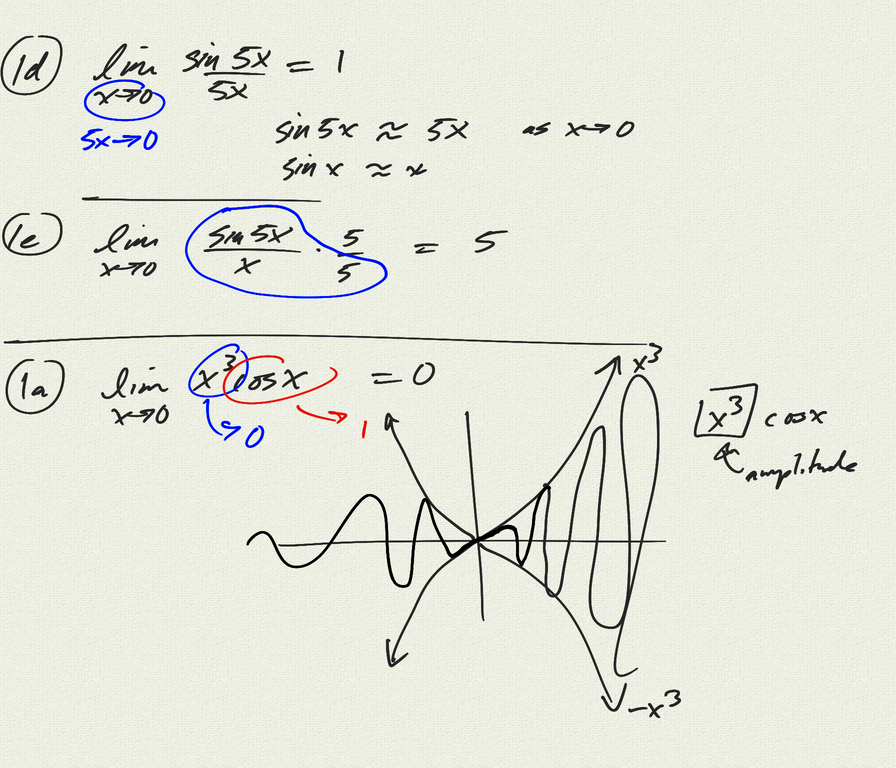 1d lim x→0 sin 5x / 5x = 1
5x→0
sin 5x ≈ 5x as x→0
sin x ≈ x
1e lim x→0 sin 5x / x · 5/5 = 5
1a lim x→0 x³ cos x = 0
→ 0
→ 1
x³
x³ cos x
amplitude
-x³